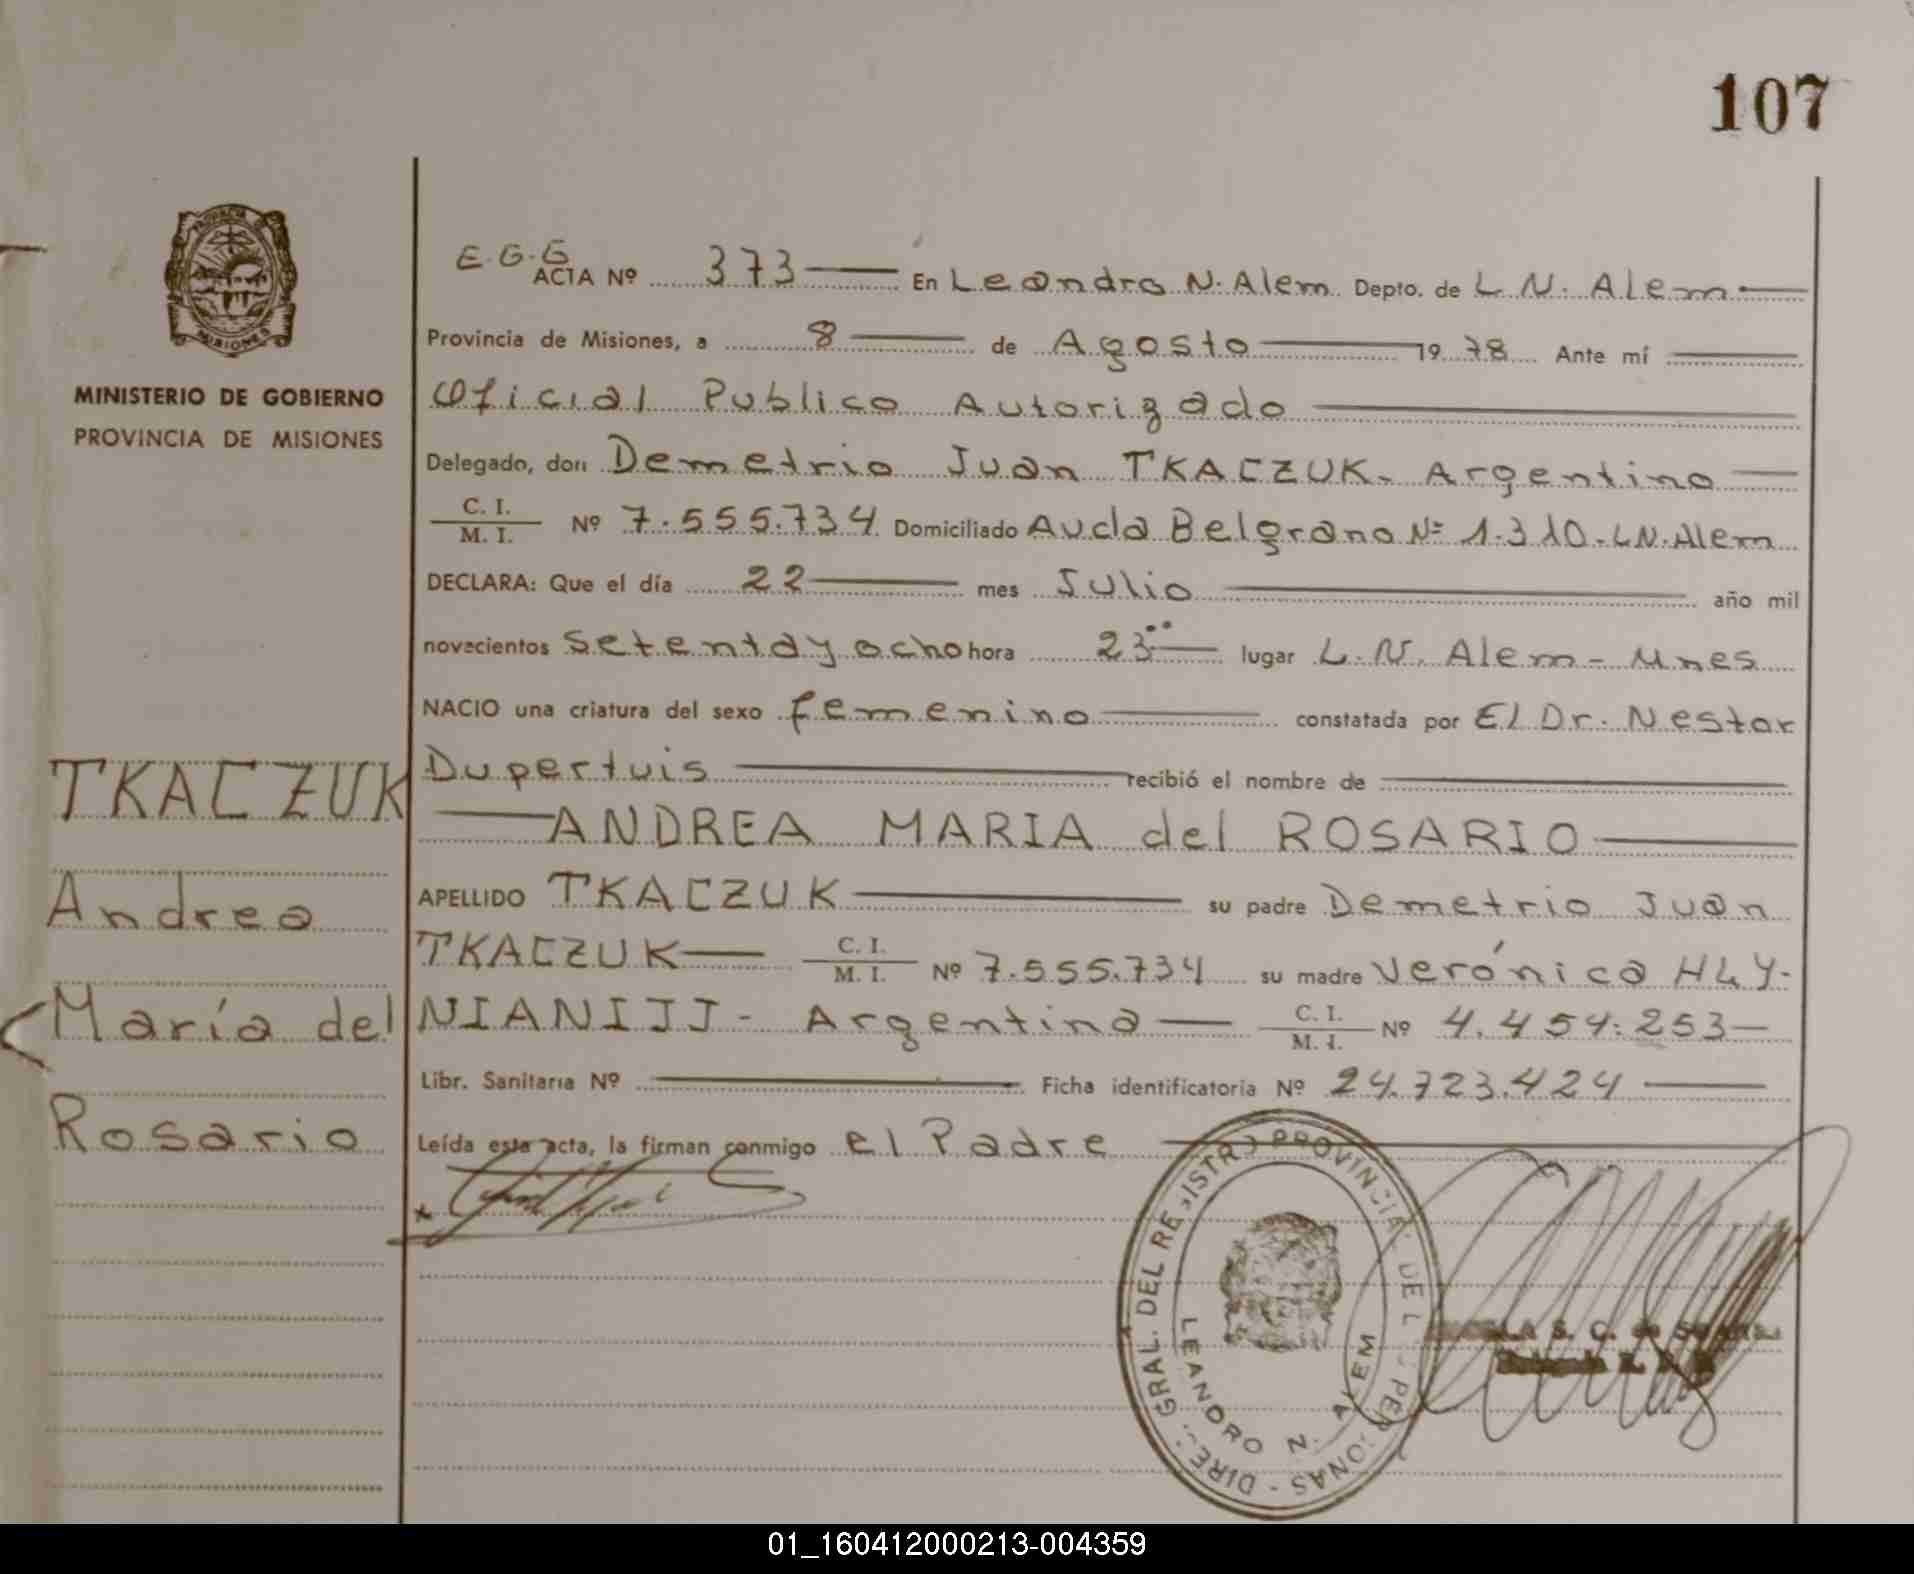 107
PROVINCIA DE
MISIONES
MINISTERIO DE GOBIERNO
PROVINCIA DE MISIONES
TKACZUK
Andrea
María del
Rosario
E.G.G
ACTA Nº 373 En Leandro N. Alem Depto. de L.N. Alem
Provincia de Misiones, a 8 de Agosto 1978 Ante mí
Oficial Publico Autorizado
Delegado, don Demetrio Juan TKACZUK. Argentino
C. I. / M. I. Nº 7.555.734 Domiciliado Avda Belgrano Nº 1.310. LN. Alem
DECLARA: Que el día 22 mes Julio año mil
novecientos setenta y ocho hora 23 lugar L.N. Alem - Mnes
NACIO una criatura del sexo femenino constatada por El Dr. Nestor
Dupertuis recibió el nombre de
ANDREA MARIA del ROSARIO
APELLIDO TKACZUK su padre Demetrio Juan
TKACZUK C. I. / M. I. Nº 7.555.734 su madre Verónica HLY-
NIANIJJ - Argentina C. I. / M. I. Nº 4.454.253
Libr. Sanitaria Nº Ficha identificatoria Nº 24.723.424
Leída esta acta, la firman conmigo el Padre
DIREC. GRAL. DEL REGISTRO PROVINCIAL DE L PERSONAS
LEANDRO N. ALEM
01_160412000213-004359